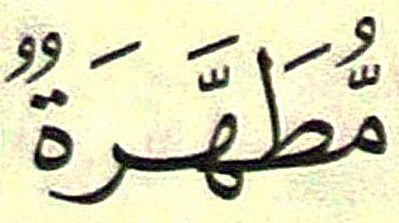 مُّطَهَّرَةٌ